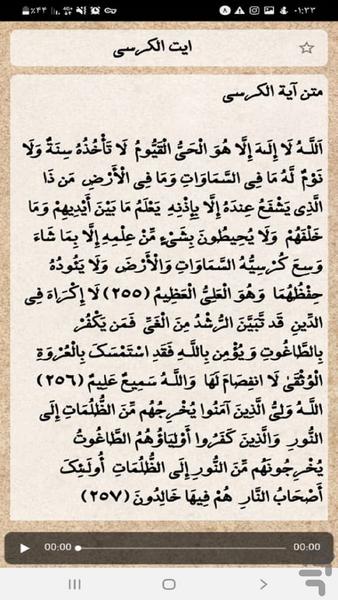 ٪۴۴ ۰۱:۳۳
آیت الکرسی
متن آیة الکرسی
اَللَّـهُ لَا إِلَـٰهَ إِلَّا هُوَ الْحَيُّ الْقَيُّومُ لَا تَأْخُذُهُ سِنَةٌ وَلَا
نَوْمٌ لَّهُ مَا فِي السَّمَاوَاتِ وَمَا فِي الْأَرْضِ مَن ذَا
الَّذِي يَشْفَعُ عِندَهُ إِلَّا بِإِذْنِهِ يَعْلَمُ مَا بَيْنَ أَيْدِيهِمْ وَمَا
خَلْفَهُمْ وَلَا يُحِيطُونَ بِشَيْءٍ مِّنْ عِلْمِهِ إِلَّا بِمَا شَاءَ
وَسِعَ كُرْسِيُّهُ السَّمَاوَاتِ وَالْأَرْضَ وَلَا يَئُودُهُ
حِفْظُهُمَا وَهُوَ الْعَلِيُّ الْعَظِيمُ (۲۵۵) لَا إِكْرَاهَ فِي
الدِّينِ قَد تَّبَيَّنَ الرُّشْدُ مِنَ الْغَيِّ فَمَن يَكْفُرْ
بِالطَّاغُوتِ وَيُؤْمِن بِاللَّـهِ فَقَدِ اسْتَمْسَكَ بِالْعُرْوَةِ
الْوُثْقَىٰ لَا انفِصَامَ لَهَا وَاللَّـهُ سَمِيعٌ عَلِيمٌ (۲۵۶)
اللَّـهُ وَلِيُّ الَّذِينَ آمَنُوا يُخْرِجُهُم مِّنَ الظُّلُمَاتِ إِلَى
النُّورِ وَالَّذِينَ كَفَرُوا أَوْلِيَاؤُهُمُ الطَّاغُوتُ
يُخْرِجُونَهُم مِّنَ النُّورِ إِلَى الظُّلُمَاتِ أُولَـٰئِكَ
أَصْحَابُ النَّارِ هُمْ فِيهَا خَالِدُونَ (۲۵۷)
00:00 00:00